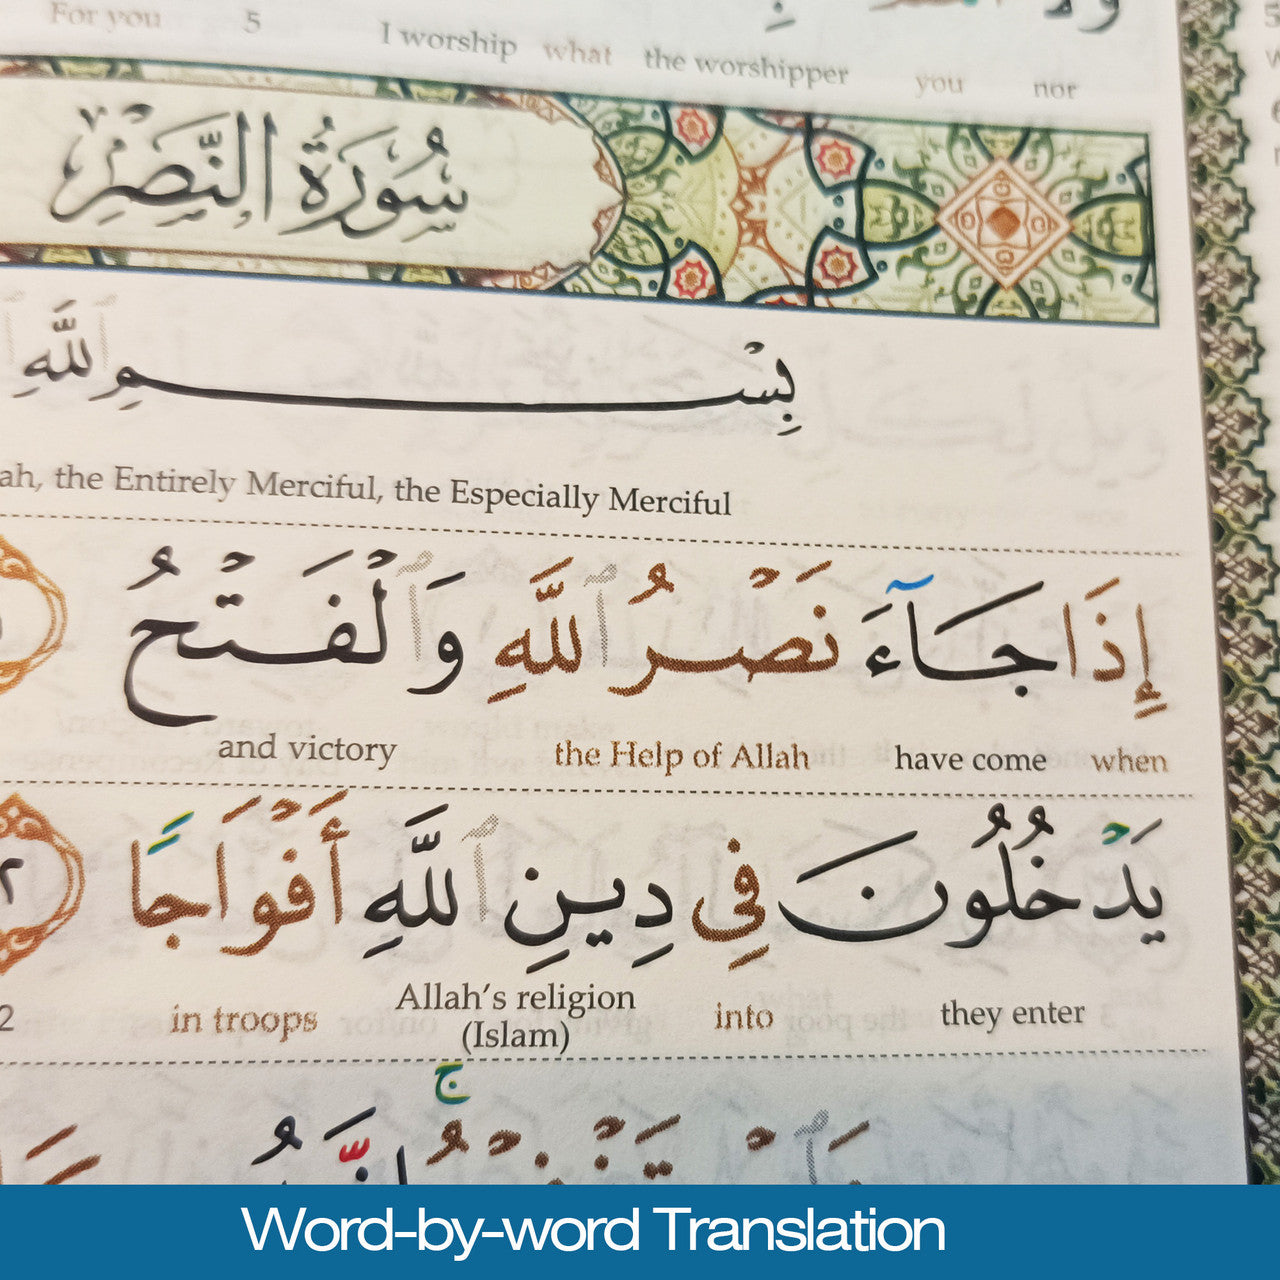 For you 5 I worship what the worshipper you nor
سُورَةُ النَّصْرِ
بِسْمِ ٱللَّهِ
ah, the Entirely Merciful, the Especially Merciful
إِذَا جَآءَ نَصْرُ ٱللَّهِ وَٱلْفَتْحُ
and victory the Help of Allah have come when
يَدْخُلُونَ فِي دِينِ ٱللَّهِ أَفْوَاجًا ٢
2 in troops Allah's religion (Islam) into they enter
Word-by-word Translation